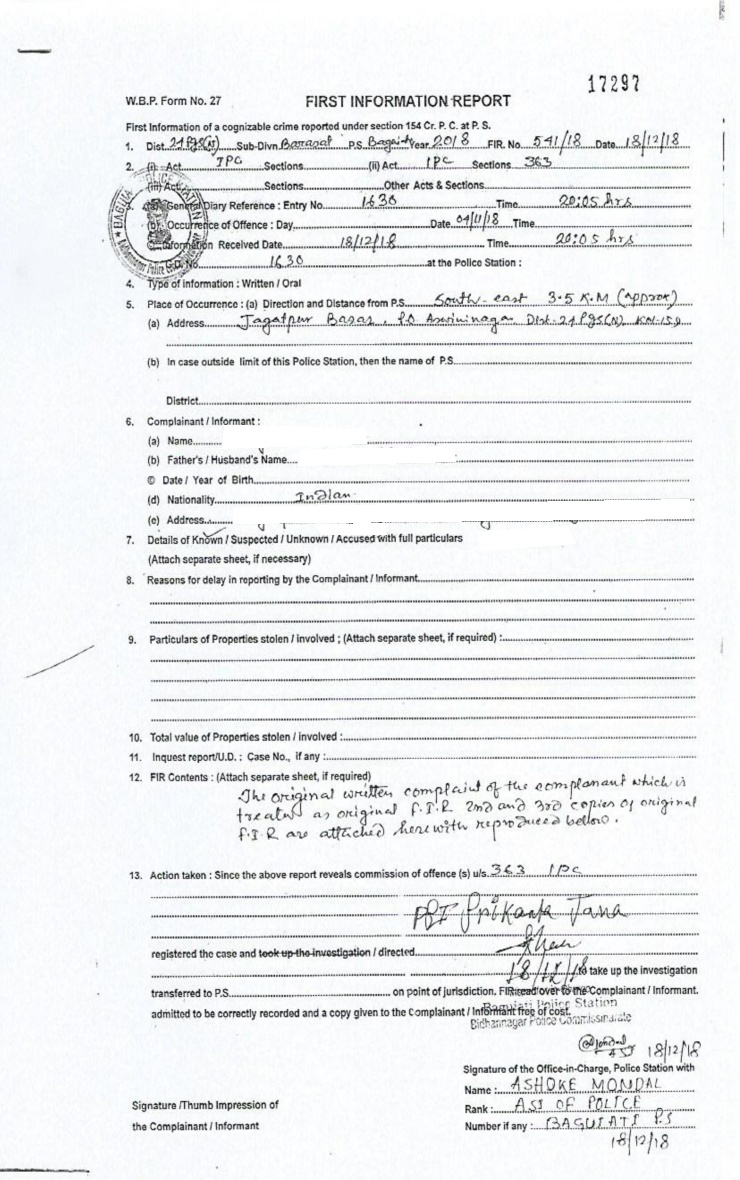 17297
W.B.P. Form No. 27 FIRST INFORMATION REPORT
First Information of a cognizable crime reported under section 154 Cr. P. C. at P. S.
1. Dist. 24 Pgs(N) Sub-Divn. Barasat P.S. Baguiati Year 2018 FIR. No. 541/18 Date 18/12/18
2. (i) Act IPC Sections (ii) Act IPC Sections 363
(iii) Act Sections Other Acts & Sections
(a) General Diary Reference : Entry No. 1630 Time 20:05 hrs
(b) Occurrence of Offence : Day Date 04/11/18 Time
Information Received Date 18/12/18 Time 20:05 hrs
G.D. No. 1630 at the Police Station :
4. Type of information : Written / Oral
5. Place of Occurrence : (a) Direction and Distance from P.S. South-east 3.5 K.M (approx)
(a) Address Jagatpur Bazar, P.O Aswininagar, Dist-24 Pgs(N) Kol-159
(b) In case outside limit of this Police Station, then the name of P.S.
District
6. Complainant / Informant :
(a) Name
(b) Father's / Husband's Name
© Date / Year of Birth
(d) Nationality Indian
(e) Address
7. Details of Known / Suspected / Unknown / Accused with full particulars
(Attach separate sheet, if necessary)
8. Reasons for delay in reporting by the Complainant / Informant
9. Particulars of Properties stolen / involved ; (Attach separate sheet, if required) :
10. Total value of Properties stolen / involved :
11. Inquest report/U.D. : Case No., if any :
12. FIR Contents : (Attach separate sheet, if required)
The original written complaint of the complanant which is
treated as original F.I.R 2nd and 3rd copies of original
F.I.R are attached herewith reproduced bellow.
13. Action taken : Since the above report reveals commission of offence (s) u/s. 363 IPC
PSI Srikanta Jana
registered the case and took up the investigation / directed
18/12/18 to take up the investigation
transferred to P.S. on point of jurisdiction. FIR read over to the Complainant / Informant.
admitted to be correctly recorded and a copy given to the Complainant / Informant free of cost.
Baguiati Police Station
Bidhannagar Police Commissionerate
ASI 18/12/18
Signature of the Office-in-Charge, Police Station with
Name : ASHOKE MONDAL
Signature /Thumb Impression of
Rank : ASI OF POLICE
the Complainant / Informant
Number if any : BAGUIATI P.S
18/12/18